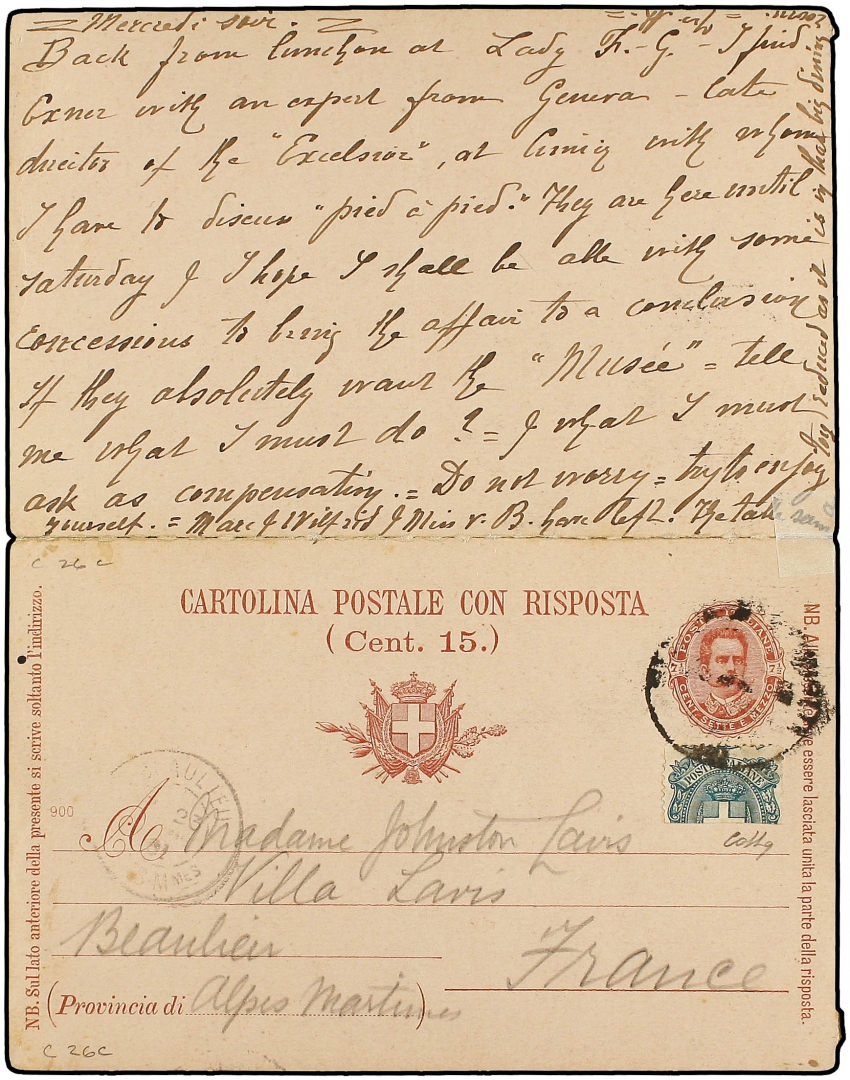 = Mercredi soir. =
Back from lunchon at Lady F.-G.- I find
Exner with an expert from Geneva - late
director of the "Excelsior", at Cimiez with whom
I have to discuss "pied à pied." They are here until
Saturday & I hope I shall be able with some
concessions to bring the affair to a conclusion
If they absolutely want the "Musée" = tell
me what I must do ? = & what I must
ask as compensation. = Do not worry = try to enjoy
yourself. = Marc & Wilfrid & Miss v. B. have left. The tab
reduced as it is in that big dining
room. =
C 26 C
CARTOLINA POSTALE CON RISPOSTA
(Cent. 15.)
POSTE ITALIANE
7½ 7½
CENT. SETTE E MEZZO
POSTE ITALIANE
Colla
900
BEAULIEU
A Madame Johnston Lavis
Villa Lavis
Beaulieu
France
(Provincia di Alpes Maritimes)
NB. Sul lato anteriore della presente si scrive soltanto l'indirizzo.
essere lasciata unita la parte della risposta.
C 26C